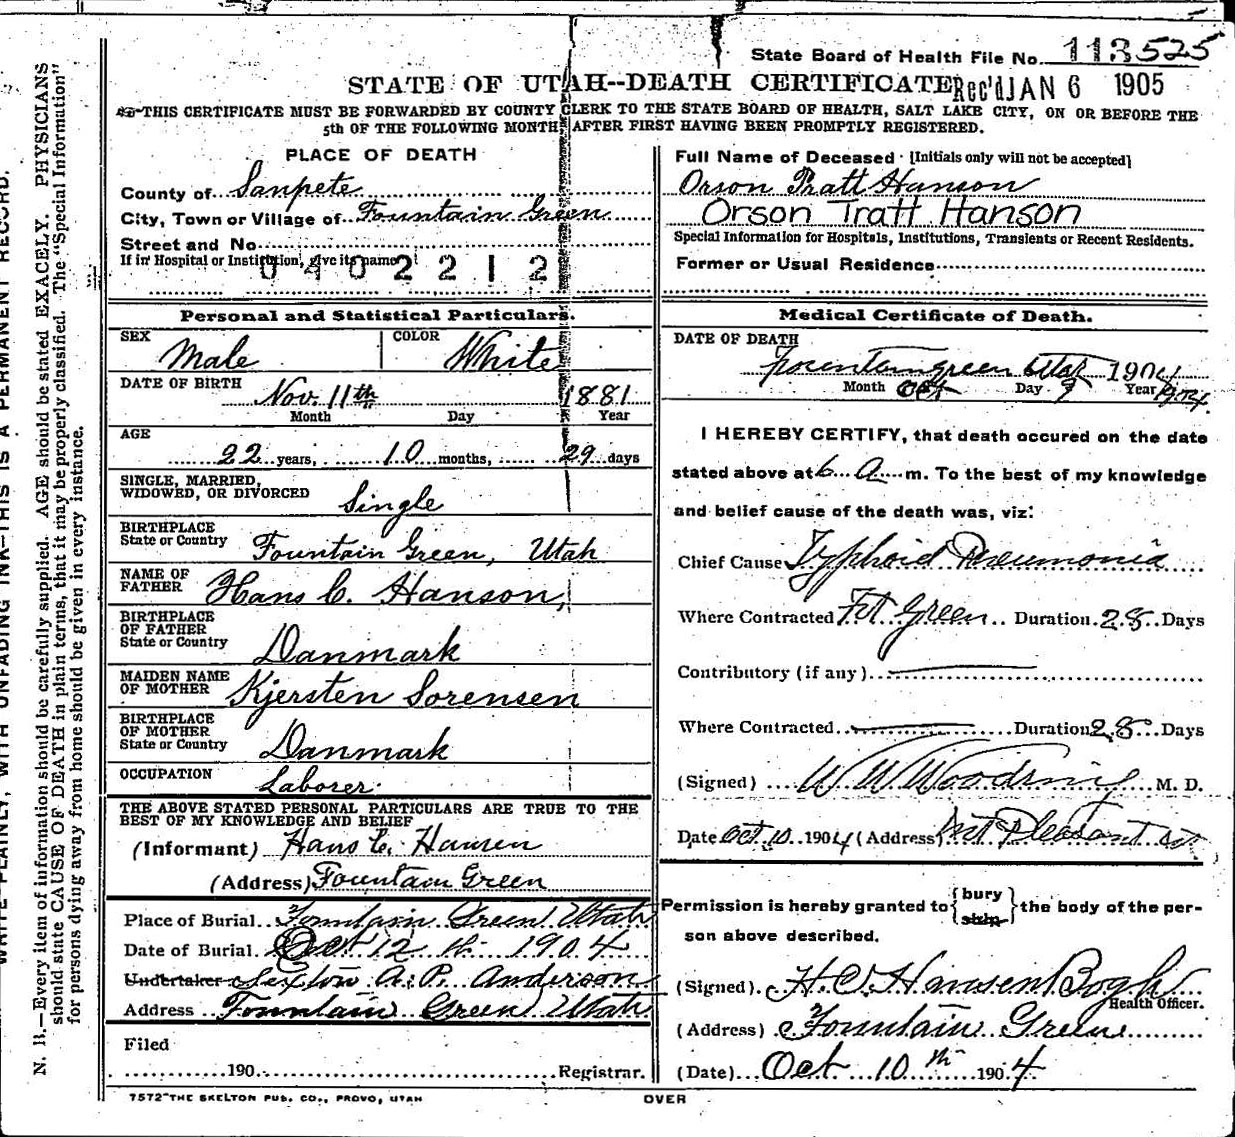 State Board of Health File No. 113525
STATE OF UTAH--DEATH CERTIFICATE Rec'd JAN 6 1905
THIS CERTIFICATE MUST BE FORWARDED BY COUNTY CLERK TO THE STATE BOARD OF HEALTH, SALT LAKE CITY, ON OR BEFORE THE
5th OF THE FOLLOWING MONTH AFTER FIRST HAVING BEEN PROMPTLY REGISTERED.
WRITE PLAINLY, WITH UNFADING INK—THIS IS A PERMANENT RECORD.
N. B.—Every item of information should be carefully supplied. AGE should be stated EXACELY. PHYSICIANS
should state CAUSE OF DEATH in plain terms, that it may be properly classified. The "Special Information"
for persons dying away from home should be given in every instance.
PLACE OF DEATH
County of Sanpete
City, Town or Village of Fountain Green
Street and No
If in Hospital or Institution, give its name
0402212
Personal and Statistical Particulars.
SEX Male COLOR White
DATE OF BIRTH Nov. 11th 1881
Month Day Year
AGE
22 years, 10 months, 29 days
SINGLE, MARRIED,
WIDOWED, OR DIVORCED Single
BIRTHPLACE
State or Country Fountain Green, Utah
NAME OF
FATHER Hans C. Hanson,
BIRTHPLACE
OF FATHER
State or Country Danmark
MAIDEN NAME
OF MOTHER Kjersten Sorensen
BIRTHPLACE
OF MOTHER
State or Country Danmark
OCCUPATION Laborer.
THE ABOVE STATED PERSONAL PARTICULARS ARE TRUE TO THE
BEST OF MY KNOWLEDGE AND BELIEF
(Informant) Hans C. Hansen
(Address) Fountain Green
Place of Burial Fountain Green Utah
Date of Burial Oct 12 th 1904
Undertaker Sexton A. P. Anderson
Address Fountain Green Utah
Filed
190 Registrar.
7572 THE SKELTON PUB. CO., PROVO, UTAH
Full Name of Deceased [Initials only will not be accepted]
Orson Pratt Hanson
Orson Tratt Hanson
Special Information for Hospitals, Institutions, Transients or Recent Residents.
Former or Usual Residence
Medical Certificate of Death.
DATE OF DEATH
Fountain green Utah 1904
Month Oct Day 9 Year 1904.
I HEREBY CERTIFY, that death occured on the date
stated above at 6 a m. To the best of my knowledge
and belief cause of the death was, viz:
Chief Cause Typhoid Pneumonia
Where Contracted Ft Green Duration 28 Days
Contributory (if any)
Where Contracted Duration 28 Days
(Signed) W W Woodring M. D.
Date Oct 10 1904 (Address) Mt Pleasant Ut
Permission is hereby granted to { bury ship } the body of the per-
son above described.
(Signed) H. C. Hansen Bogh
Health Officer.
(Address) Fountain Green
(Date) Oct 10 th 1904
OVER